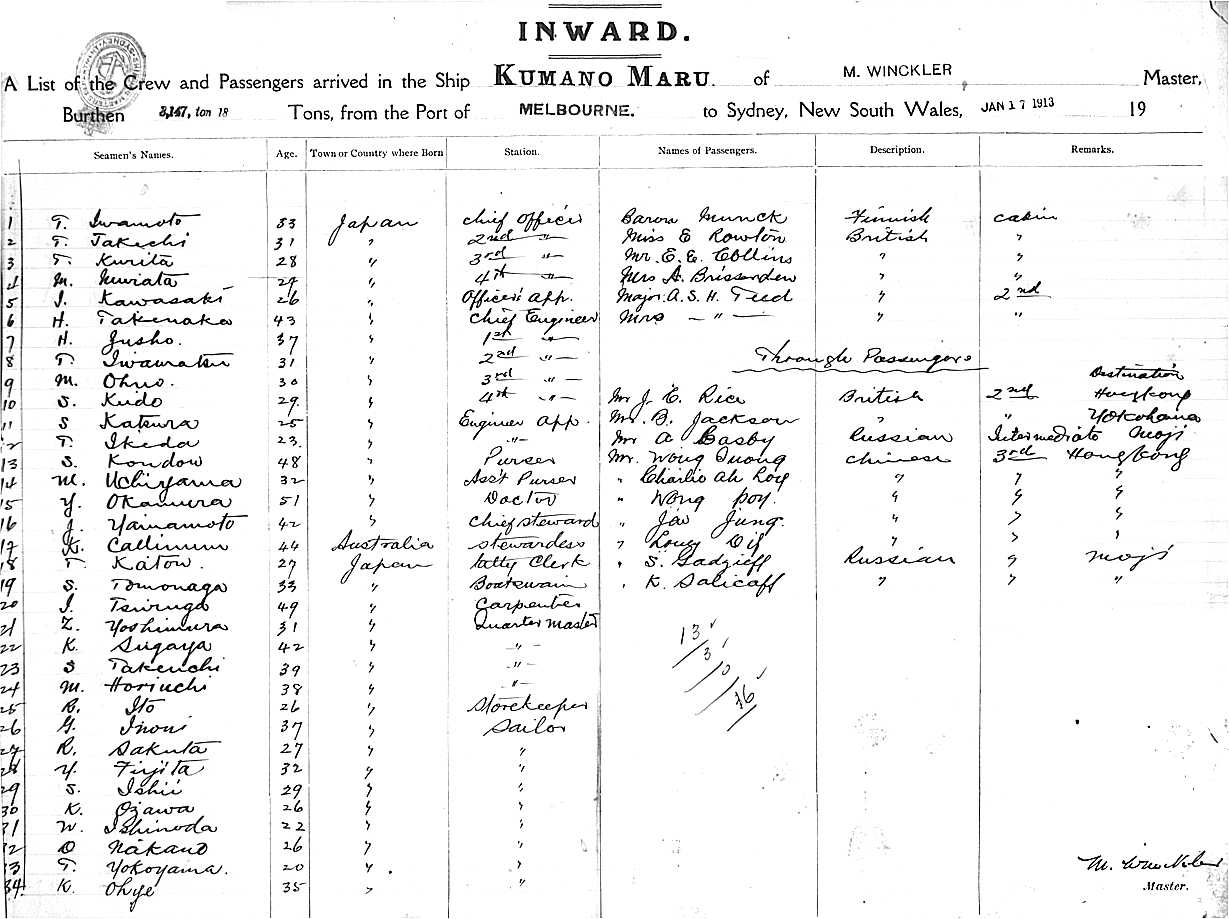 INWARD.
A List of the Crew and Passengers arrived in the Ship KUMANO MARU. of M. WINCKLER Master,
Burthen 3,147, ton 18 Tons, from the Port of MELBOURNE. to Sydney, New South Wales, JAN 17 1913 19
Seamen's Names. Age. Town or Country where Born Station. Names of Passengers. Description. Remarks.
1 T. Iwamoto 33 Japan Chief Officer Baron Munck Finnish cabin
2 T. Takechi 31 " 2nd " Miss E Rowton British "
3 T. Kurita 28 " 3rd " Mr. E. E. Collins " "
4 M. 29 " 4th " Mrs A. Brissenden " "
5 J. Kawasaki 26 " Officer's App. Major A. S. H. Teed " 2nd
6 H. Takenaka 43 " Chief Engineer Mrs " " "
7 H. Jusho. 37 " 1st "
8 T. 31 " 2nd " Through Passengers
9 M. Ohno. 30 " 3rd " Destination
10 S. Kudo 29 " 4th " Mr J. E. Rice British 2nd Hongkong
11 S Katsura 25 " Engineer App. Mr. B. Jackson " " Yokohama
12 T. Ikeda 23. " " Mr A Basby Russian Intermediate Moji
13 S. Kondow 48 " Purser Mr. Wong Chinese 3rd Hongkong
14 M. Uchiyama 32 " Ass't Purser " Charlie Ah " " "
15 Y. Okamura 51 " Doctor " Wong " " "
16 J. Yamamoto 42 " Chief Steward " Jow Jung. " " "
17 K. 44 Australia Stewardess " Louey " " "
18 T. Katow. 27 Japan Tally Clerk " S. Gadzieff Russian " Moji
19 S. Tomonaga 33 " Boatswain " K. Salicaff " " "
20 I. Tsuruga 49 " Carpenter
21 Z. Yoshimura 31 " Quartermaster
22 K. Sugaya 42 " "
23 S Takeuchi 39 " "
24 M. Horiuchi 38 " "
25 B. Ito 26 " Storekeeper
26 G. Inoui 37 " Sailor
27 R. Sakuta 27 " "
28 Y. Fujita 32 " "
29 S. Ishii 29 " "
30 K. Ozawa 26 " "
31 W. Ishinoda 22 " "
32 O Nakano 26 " "
33 T. Yokoyama. 20 " "
34. K. Ohye 35 " "
13
3
0
16
M. Winckler
Master.